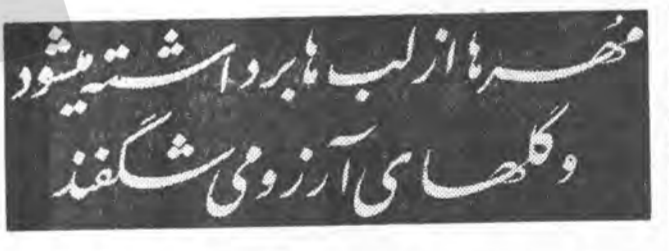 مُهرها از لب ها برداشته میشود
و گلهای آرزو می شگفند